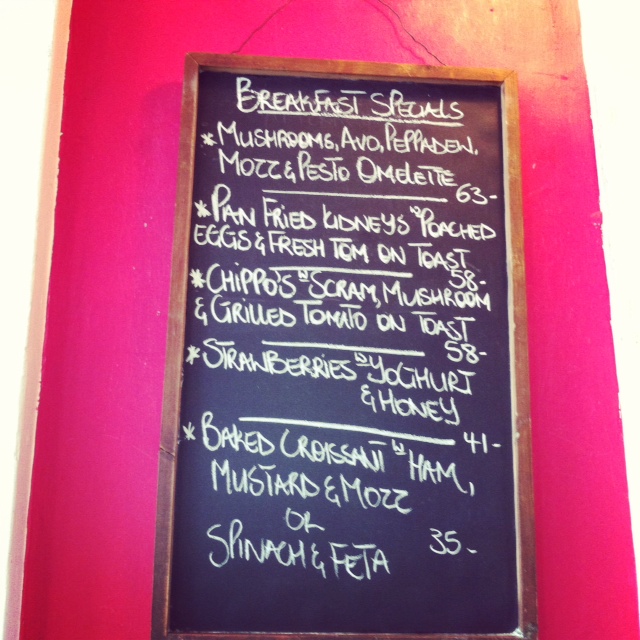 BREAKFAST SPECIALS
* MUSHROOMS, AVO, PEPPADEW,
MOZZ & PESTO OMELETTE
63-
* PAN FRIED KIDNEYS W POACHED
EGGS & FRESH TOM ON TOAST
58-
* CHIPPO'S W SCRAM, MUSHROOM
& GRILLED TOMATO ON TOAST
58-
* STRANBERRIES W YOGHURT
& HONEY
41-
* BAKED CROISSANT W HAM,
MUSTARD & MOZZ
OR
SPINACH & FETA 35-